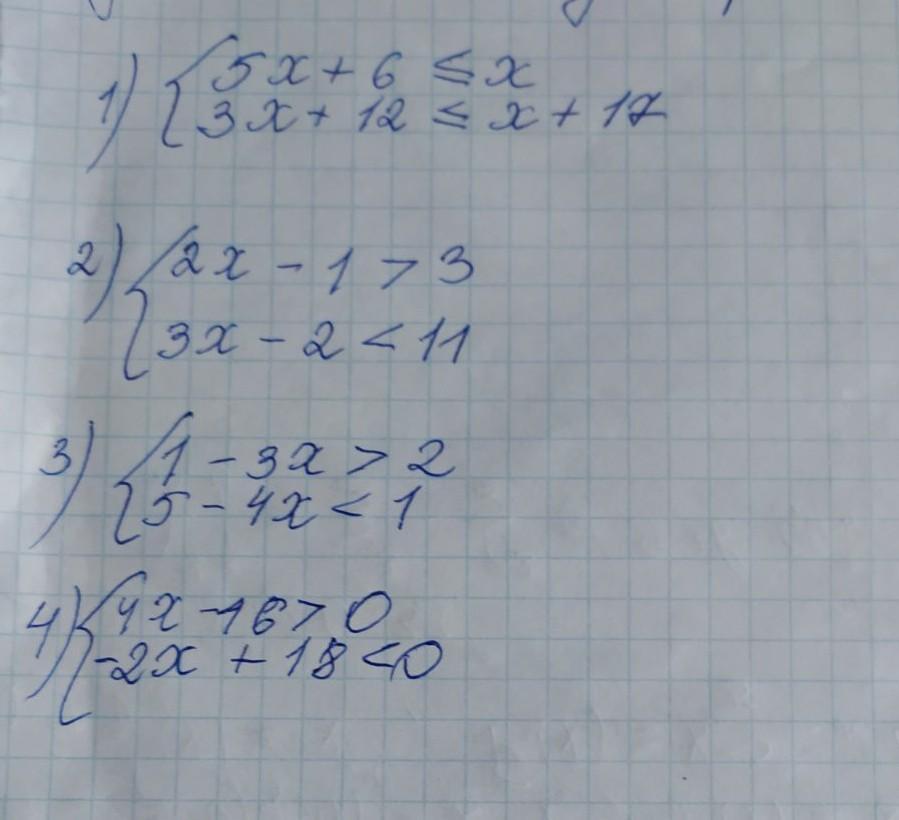 1) { 5x + 6 ≤ x
3x + 12 ≤ x + 17
2) { 2x - 1 > 3
3x - 2 < 11
3) { 1 - 3x > 2
5 - 4x < 1
4) { 4x - 16 > 0
-2x + 18 < 0